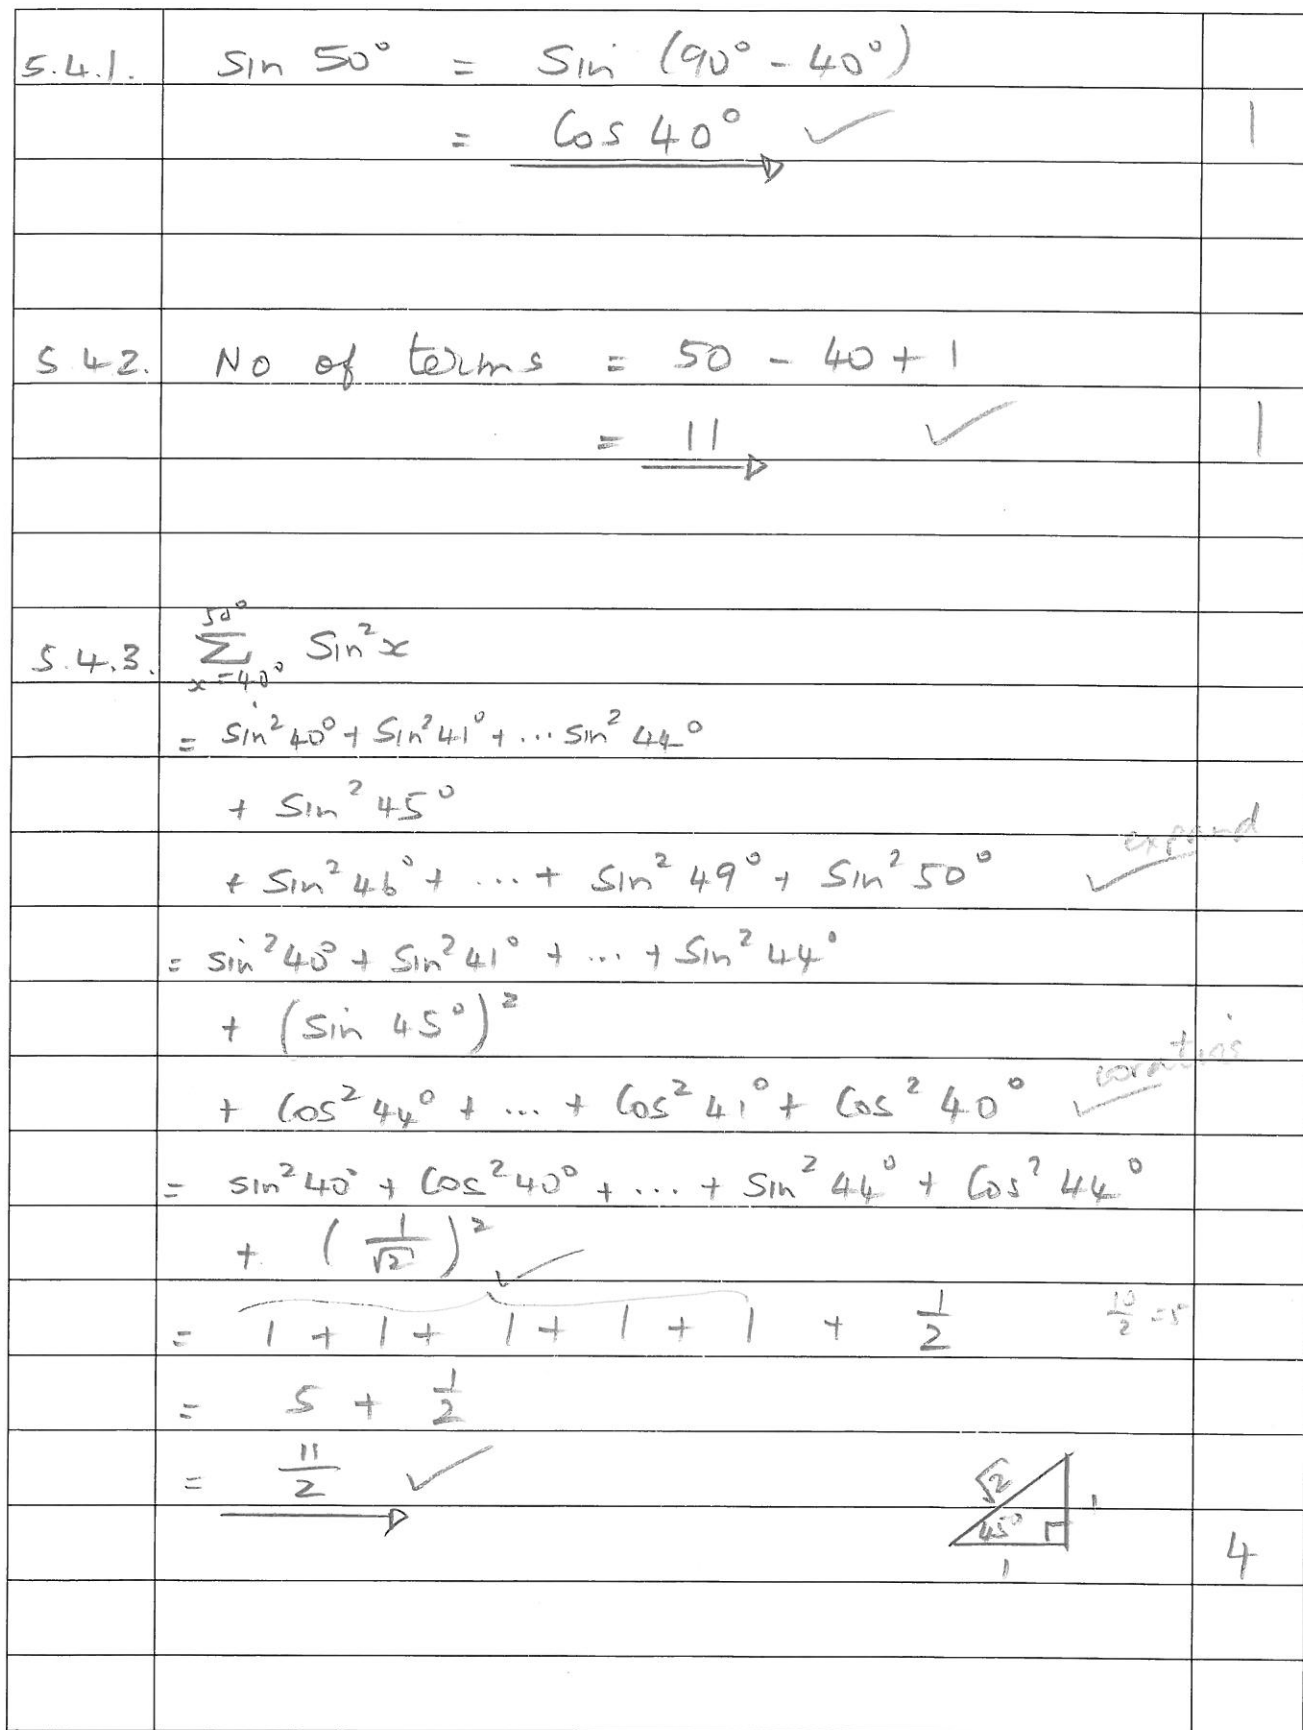 5.4.1. Sin 50° = Sin (90° - 40°)
= Cos 40° ✓ 1
5.4.2. No of terms = 50 - 40 + 1
= 11 ✓ 1
5.4.3. 50° Σ x=40° Sin²x
= sin²40° + Sin²41° + ... sin²44°
+ Sin²45°
+ Sin²46° + ... + Sin²49° + Sin²50° ✓ expand
= sin²40° + Sin²41° + ... + Sin²44°
+ (Sin 45°)²
+ Cos²44° + ... + Cos²41° + Cos²40° ✓ coratios
= sin²40° + Cos²40° + ... + Sin²44° + Cos²44°
+ (1/√2)² ✓
= 1 + 1 + 1 + 1 + 1 + 1/2 10/2 = 5
= 5 + 1/2
= 11/2 ✓
√2 45° 1 1
4